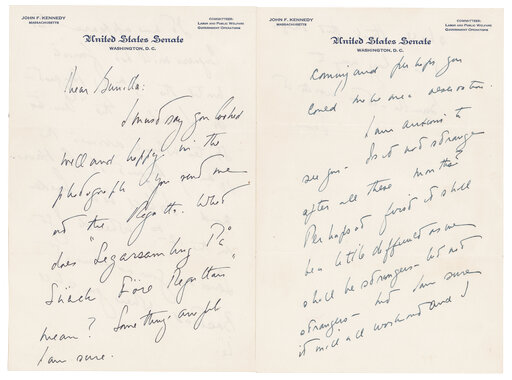 JOHN F. KENNEDY
MASSACHUSETTS
COMMITTEES:
LABOR AND PUBLIC WELFARE
GOVERNMENT OPERATIONS
United States Senate
WASHINGTON, D.C.
Dear Gunilla:
I must say you looked
well and happy in the
photograph you send me
at the Regatta. What
does "Segarsamling På
Skäck Före Regattan"
mean? Something awful
I am sure.
JOHN F. KENNEDY
MASSACHUSETTS
COMMITTEES:
LABOR AND PUBLIC WELFARE
GOVERNMENT OPERATIONS
United States Senate
WASHINGTON, D.C.
coming and perhaps you
could make me a reservation.
I am anxious to
see you - Is it not strange
after all these months?
Perhaps at first it shall
be a little difficult as we
shall be strangers - but not
strangers - but I am sure
it will all work out and I